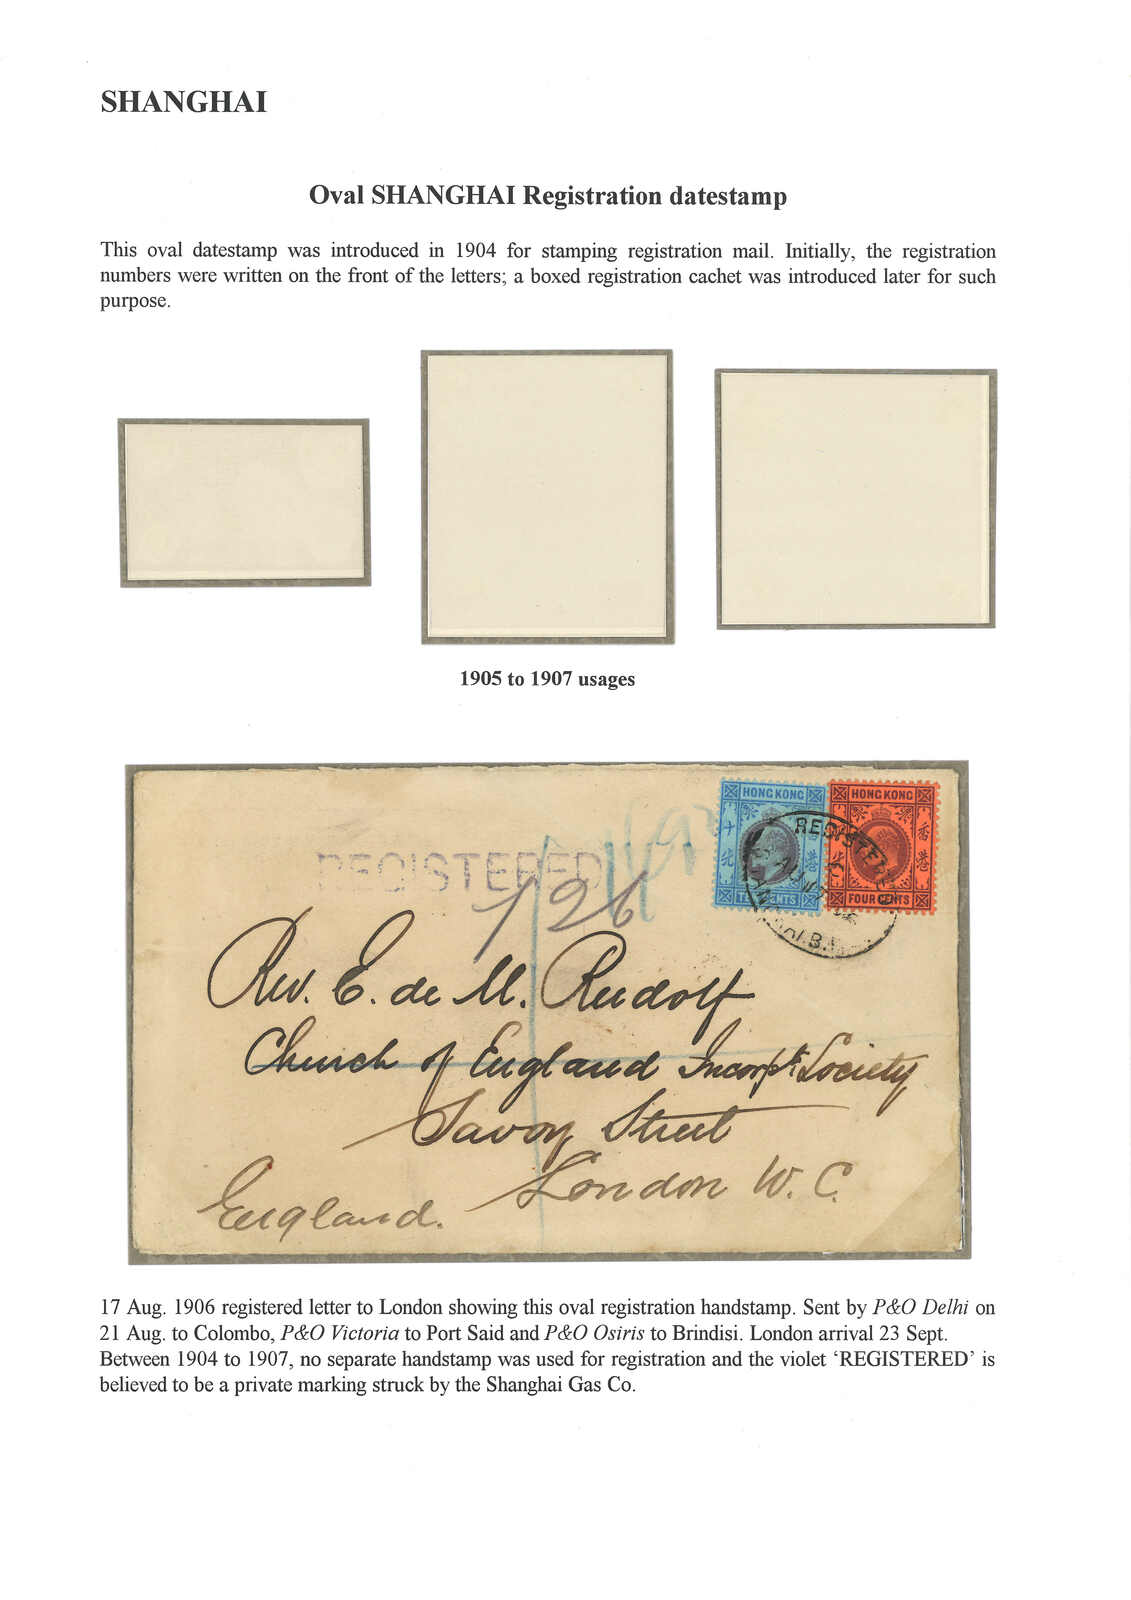 SHANGHAI
Oval SHANGHAI Registration datestamp
This oval datestamp was introduced in 1904 for stamping registration mail. Initially, the registration
numbers were written on the front of the letters; a boxed registration cachet was introduced later for such
purpose.
1905 to 1907 usages
HONG KONG
TEN CENTS
HONG KONG
香港
FOUR CENTS
REGISTERED
REGISTERED
126
Rev. E. de M. Rudolf
Church of England Incorp. Society
Savoy Street
London W. C.
England.
17 Aug. 1906 registered letter to London showing this oval registration handstamp. Sent by P&O Delhi on
21 Aug. to Colombo, P&O Victoria to Port Said and P&O Osiris to Brindisi. London arrival 23 Sept.
Between 1904 to 1907, no separate handstamp was used for registration and the violet ‘REGISTERED’ is
believed to be a private marking struck by the Shanghai Gas Co.